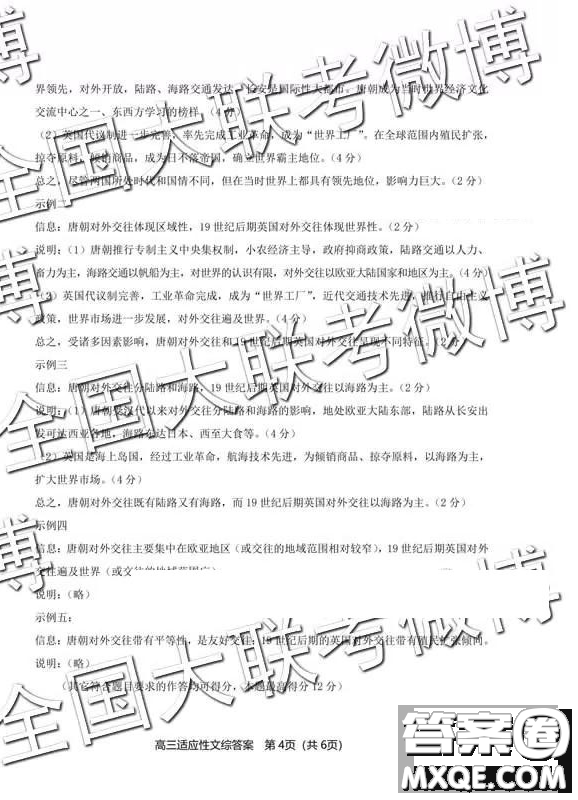 界领先，对外开放，陆路、海路交通发达，长安是国际性大都市。唐朝成为当时世界经济文化
交流中心之一、东西方学习的榜样。（4分）
（2）英国代议制进一步完善，率先完成工业革命，成为“世界工厂”。在全球范围内殖民扩张，
掠夺原料，倾销商品，成为日不落帝国，确立世界霸主地位。（4分）
总之，尽管两国所处时代和国情不同，但在当时世界上都具有领先地位，影响力巨大。（2分）
示例二
信息：唐朝对外交往体现区域性，19世纪后期英国对外交往体现世界性。（2分）
说明：（1）唐朝推行专制主义中央集权制，小农经济主导，政府抑商政策，陆路交通以人力、
畜力为主，海路交通以帆船为主，对世界的认识有限，对外交往以欧亚大陆国家和地区为主。（4分）
（2）英国代议制完善，工业革命完成，成为“世界工厂”，近代交通技术先进，推行自由主义
政策，世界市场进一步发展，对外交往遍及世界。（4分）
总之，受诸多因素影响，唐朝对外交往和19世纪后期英国对外交往呈现不同特征。（2分）
示例三
信息：唐朝对外交往分陆路和海路，19世纪后期英国对外交往以海路为主。（2分）
说明：（1）唐朝受汉代以来对外交往分陆路和海路的影响，地处欧亚大陆东部，陆路从长安出
发可达西亚各地，海路东达日本、西至大食等。（4分）
（2）英国是海上岛国，经过工业革命，航海技术先进，为倾销商品、掠夺原料，以海路为主，
扩大世界市场。（4分）
总之，唐朝对外交往既有陆路又有海路，而19世纪后期英国对外交往以海路为主。（2分）
示例四
信息：唐朝对外交往主要集中在欧亚地区（或交往的地域范围相对较窄），19世纪后期英国对外
交往遍及世界（或交往的地域范围广
说明：（略）
示例五：
信息：唐朝对外交往带有平等性，是友好交往；19世纪后期的英国对外交往带有殖民扩张倾向。
说明：（略）
（其它符合题目要求的作答均可得分，本题最高得分12分）
高三适应性文综答案 第4页（共6页）
全国大联考微博
全国大联考微博
全国大联考微博
答案圈
MXQE.COM